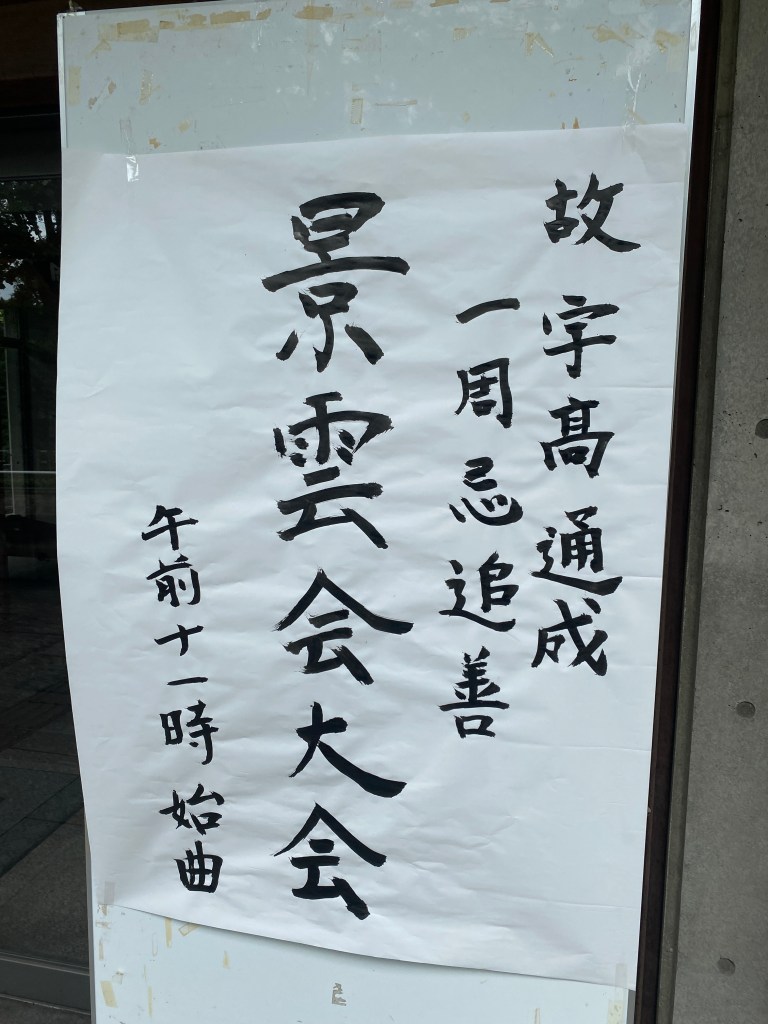 故 宇髙通成
一周忌追善
景雲会大会
午前十一時始曲